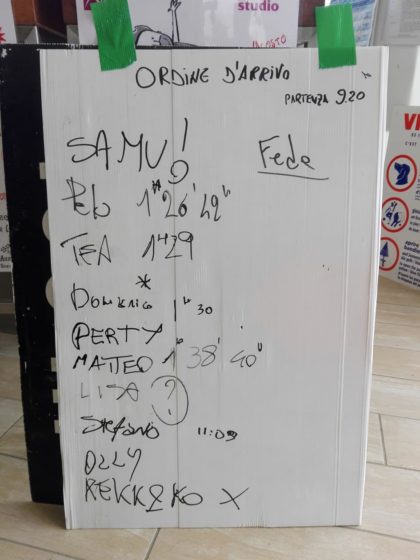 studio
ORDINE D'ARRIVO
PARTENZA 9.20
SAMU!
Fede
1h 26' 42"
TEA 1h29
*
Domenico 1h 30
PERTY
MATTEO 1h 38' 40"
LISA ?
Stefano 11:09
OLLY
REKK2KO X